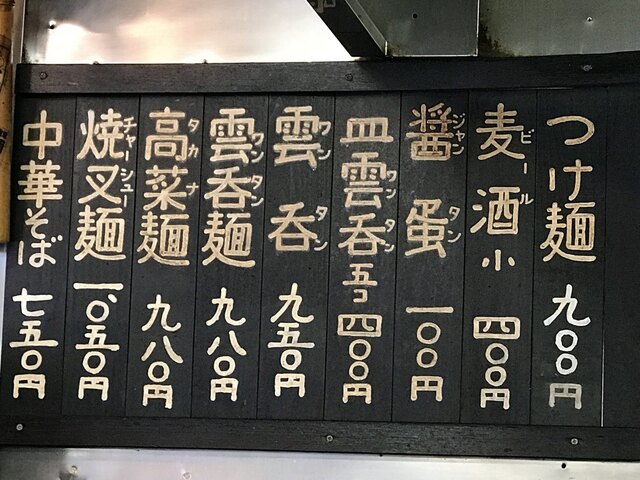 つけ麺 九〇〇円
麦酒小 ビール 四〇〇円
醤蛋 ジャンタン 一〇〇円
皿雲呑五コ ワンタン 四〇〇円
雲呑 ワンタン 九五〇円
雲呑麺 ワンタン 九八〇円
高菜麺 タカナ 九八〇円
焼叉麺 チャーシュー 一、〇五〇円
中華そば 七五〇円